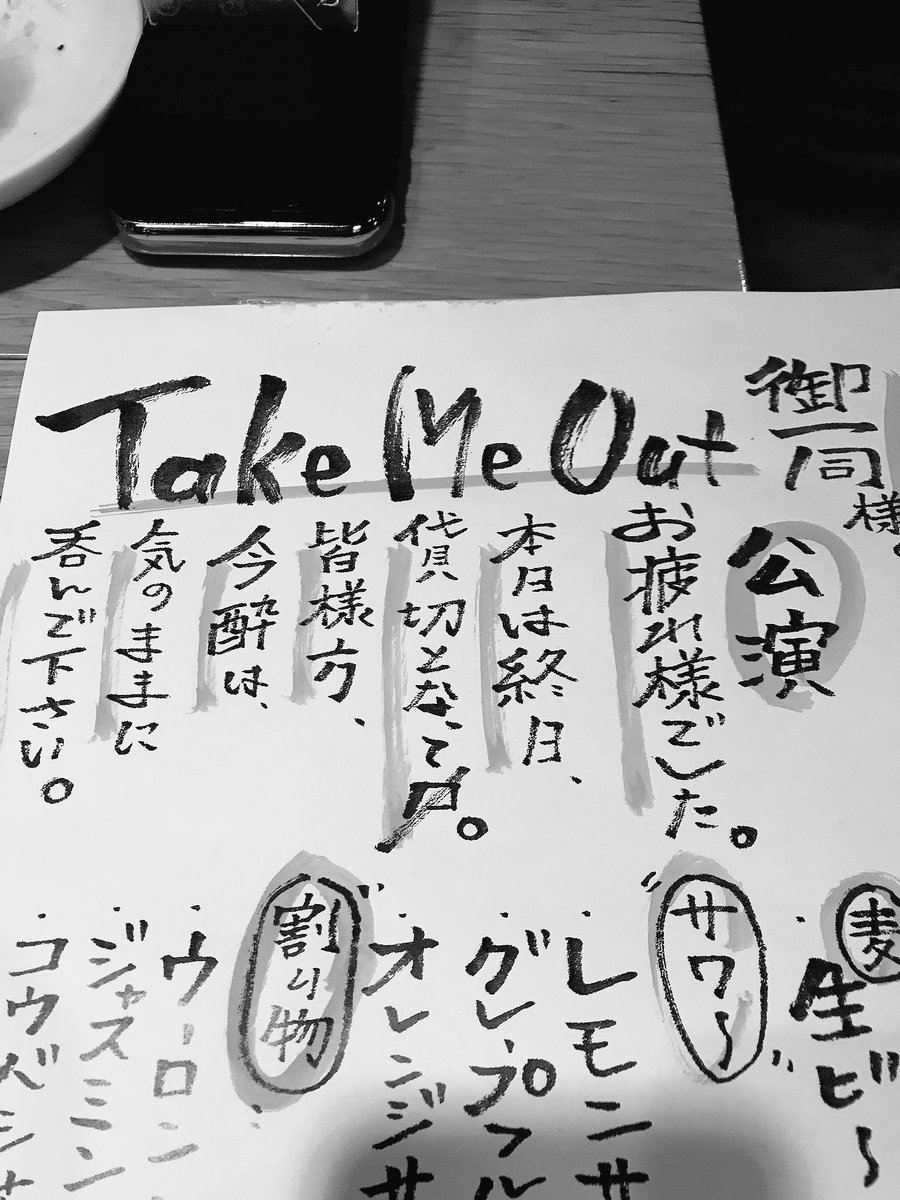 Take Me Out
御一同様。
公演
お疲れ様でした。
本日は終日、
貸切となって〼。
皆様方、
今酔は、
気のままに
呑んで下さい。
麦
・生ビ〜
"サワ〜"
・レモンサ
・グレープフル
・オレンジサ
"割り物"
・ウーロン
・ジャスミン